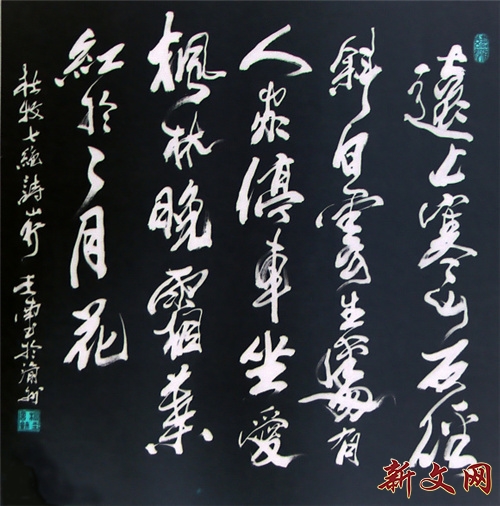 遠上寒山石徑
斜白雲生處有
人家停車坐愛
楓林晚霜葉
紅於二月花
杜牧七絕詩山行 南书於渝州
新文网